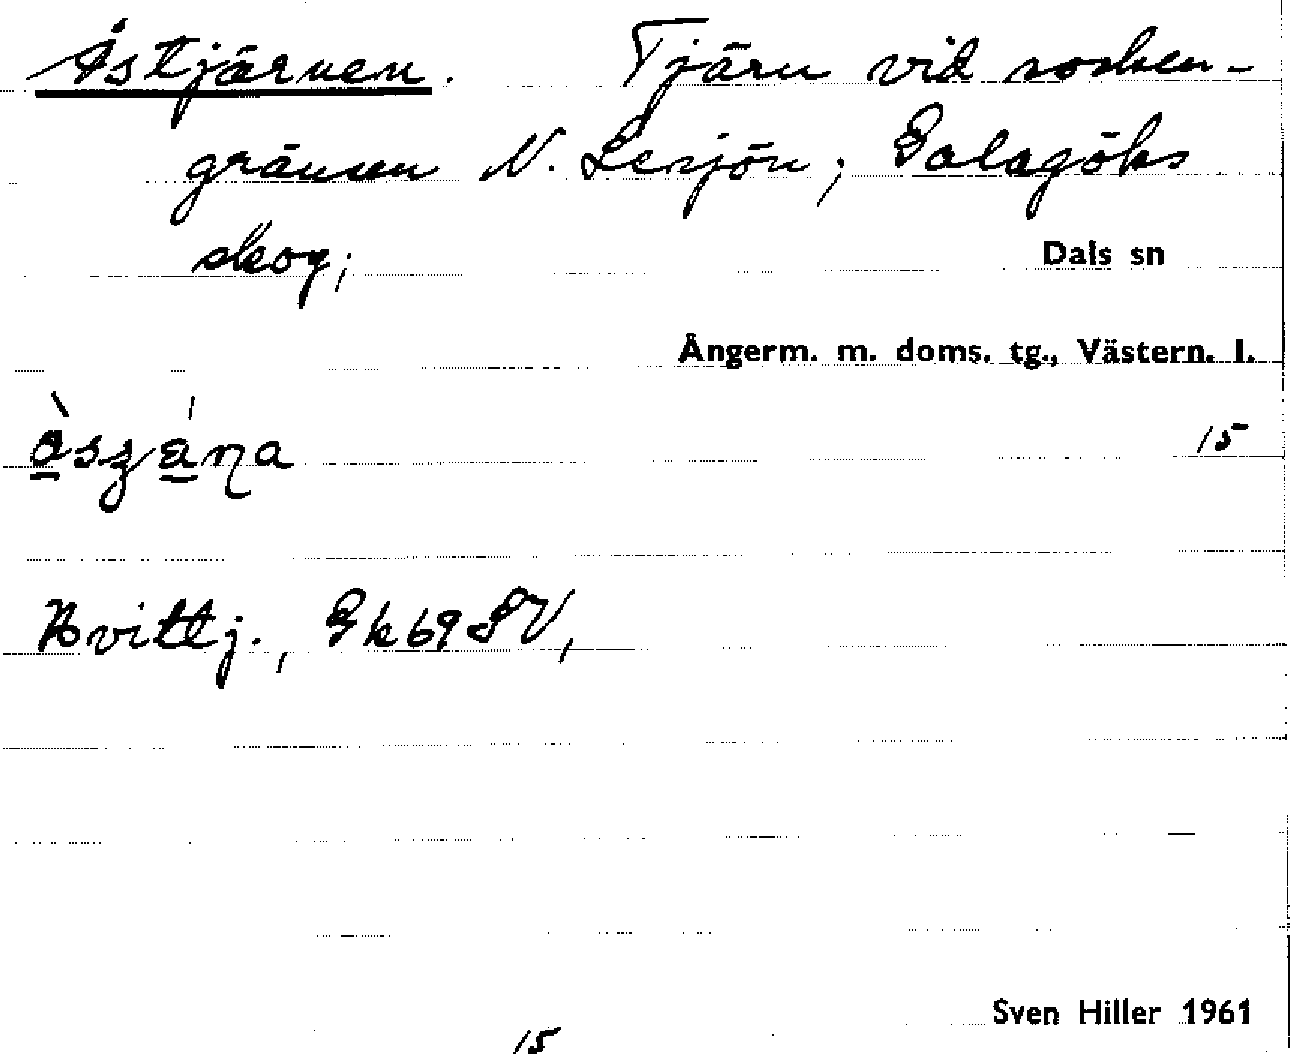 Åstjärnen. Tjärn vid socken-
gränsen N. Lesjön; Galagöks
skog;
Dals sn
Ångerm. m. doms. tg., Västern. l.
15
Hvittj., Ek69SV,
Sven Hiller 1961
15